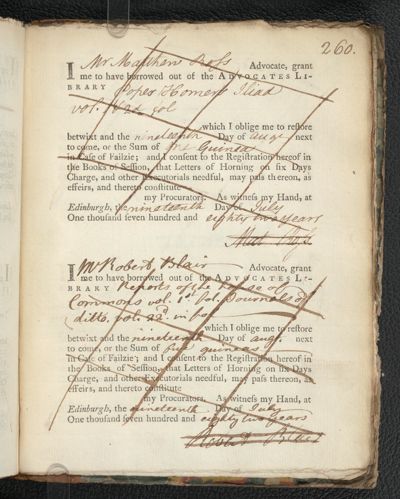 260.
I Mr Matthew Ross Advocate, grant
me to have borrowed out of the ADVOCATES LI-
BRARY Popes Homers Iliad
vol.
which I oblige me to reſtore
betwixt and the nineteenth Day of augt next
to come, or the Sum of one Guinea
in Caſe of Failzie; and I conſent to the Regiſtration hereof in
the Books of Seſſion, that Letters of Horning on ſix Days
Charge, and other Executorials needful, may paſs thereon, as
effeirs, and thereto conſtitute
my Procurators. As witneſs my Hand, at
Edinburgh, the nineteenth Day of July
One thouſand ſeven hundred and eighty two years
Mat. Roſs
I Mr Robert Blair Advocate, grant
me to have borrowed out of the ADVOCATES LI-
BRARY Reports of the House of
Commons vol. 1st fol. Journals of
ditto. vol. 22d.
which I oblige me to reſtore
betwixt and the nineteenth Day of augt. next
to come, or the Sum of five guineas
in Caſe of Failzie; and I conſent to the Regiſtration hereof in
the Books of Seſſion, that Letters of Horning on ſix Days
Charge, and other Executorials needful, may paſs thereon, as
effeirs, and thereto conſtitute
my Procurators. As witneſs my Hand, at
Edinburgh, the nineteenth Day of July
One thouſand ſeven hundred and eighty two years
Robert Blair